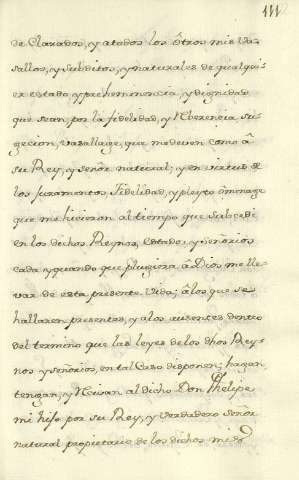 111
de Clarados, y atados los Otros mis Va
sallos, y subditos, y naturales de qualqui
er estado y preheminencia, y dignidad
que sean, por la fidelidad, y Reberencia su
gecion, vasallage, que me deven como â
su Rey, y señor natural; y en virtud de
los Juramentos, Fidelidad, y pleyto omenage
que me hicieron al tiempo que subcedi
en los dichos Reynos, estados, y señorios
cada y quando que plugiera â Dios me lle
var de esta presente Vida; â los que se
hallaren presentes, y alos ausentes dentro
del termino que las leyes de los dhos Rey
nos y señorios, en tal Caso disponen; hagan,
tengan, y Reciban al dicho Don Phelipe
mi hijo por su Rey, y verdadero señor
natural propietario de los dichos mis